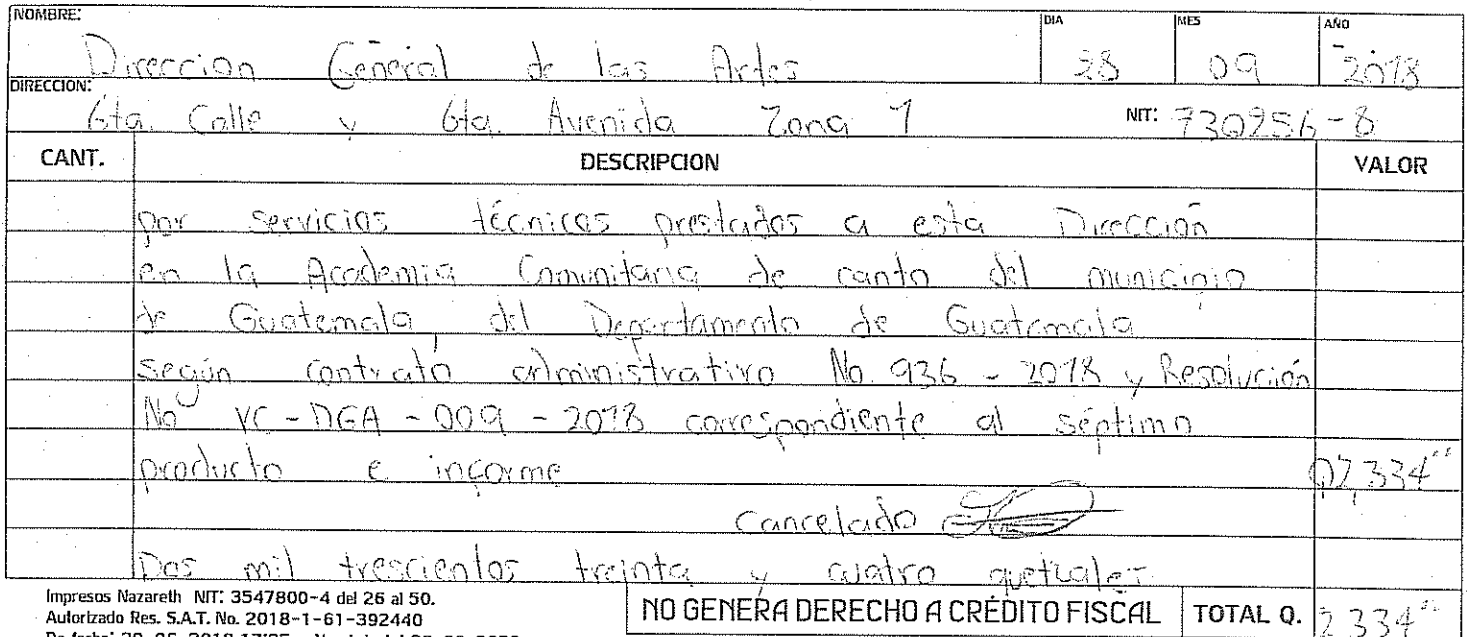 NOMBRE: DIA MES AÑO
Direccion General de las Artes 28 09 2018
DIRECCION:
6ta. Calle y 6ta. Avenida Zona 1 NIT: 730256-8
CANT. DESCRIPCION VALOR
por servicios técnicos prestados a esta Dirección
en la Academia Comunitaria de canto del municipio
de Guatemala del Departamento de Guatemala
según contrato administrativo No. 936 - 2018 y Resolución
No VC - DGA - 009 - 2018 correspondiente al séptimo
producto e informe Q2,334
Cancelado
Dos mil trescientos treinta y cuatro quetzales
Impresos Nazareth NIT: 3547800-4 del 26 al 50.
NO GENERA DERECHO A CRÉDITO FISCAL TOTAL Q. 2,334
Autorizado Res. S.A.T. No. 2018-1-61-392440